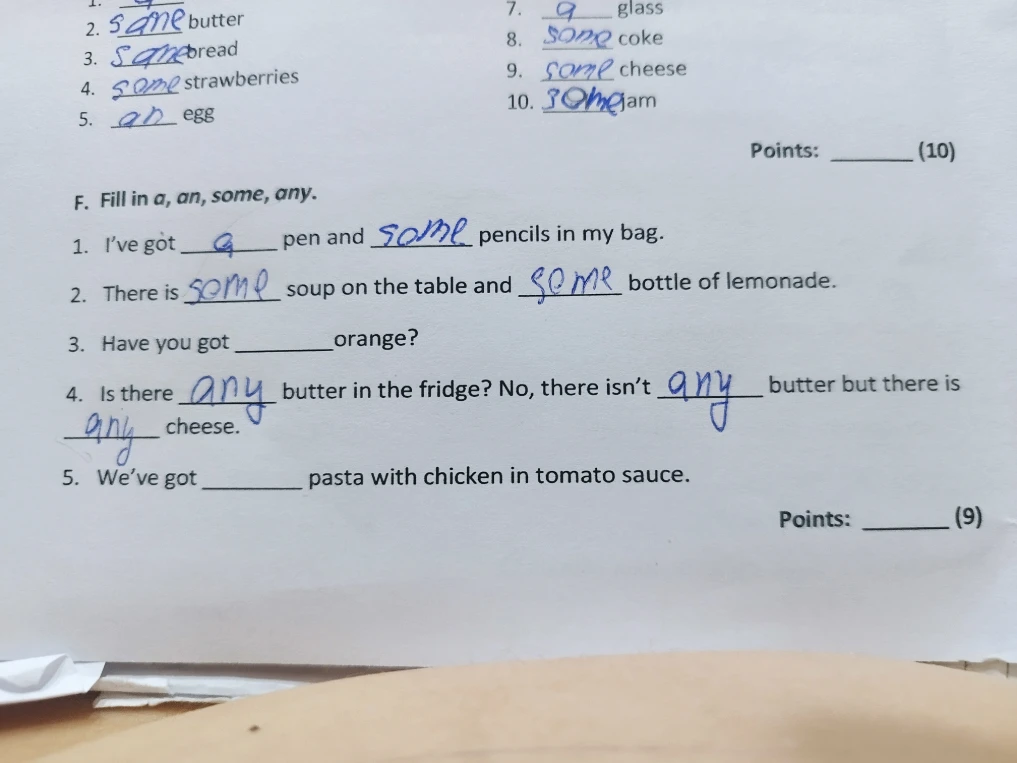 1. a
2. some butter
3. some bread
4. some strawberries
5. an egg
7. a glass
8. some coke
9. some cheese
10. some jam
Points: ______ (10)
F. Fill in a, an, some, any.
1. I've got a pen and some pencils in my bag.
2. There is some soup on the table and some bottle of lemonade.
3. Have you got ______ orange?
4. Is there any butter in the fridge? No, there isn't any butter but there is
any cheese.
5. We've got ______ pasta with chicken in tomato sauce.
Points: ______ (9)